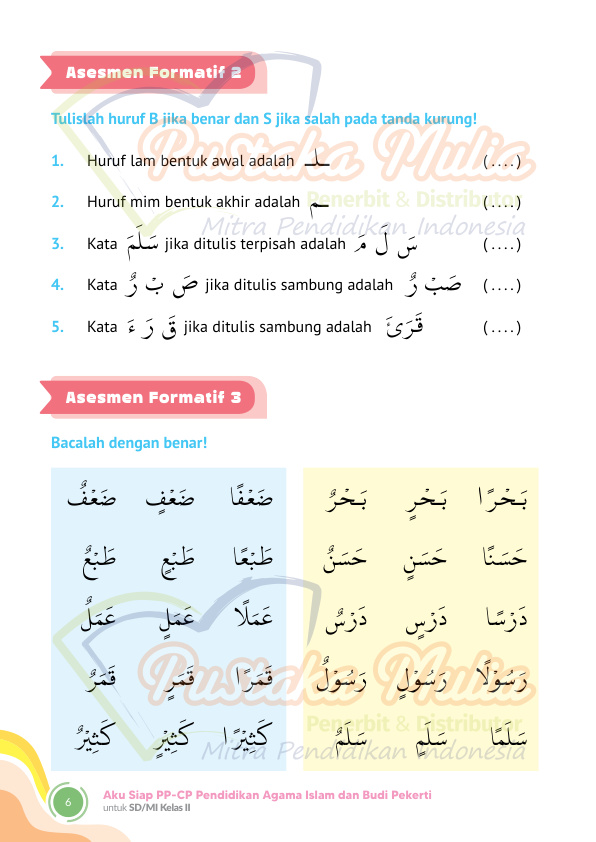 Asesmen Formatif 2
Tulislah huruf B jika benar dan S jika salah pada tanda kurung!
1. Huruf lam bentuk awal adalah ـلـ (....)
2. Huruf mim bentuk akhir adalah ـم (....)
3. Kata سَلَمَ jika ditulis terpisah adalah سَ لَ مَ (....)
4. Kata صَ بْ رٌ jika ditulis sambung adalah صَبْ رٌ (....)
5. Kata قَ رَ ءَ jika ditulis sambung adalah قَرَئَ (....)
Asesmen Formatif 3
Bacalah dengan benar!
بَحْرًا بَحْرٍ بَحْرٌ ضَعْفًا ضَعْفٍ ضَعْفٌ
حَسَنًا حَسَنٍ حَسَنٌ طَبْعًا طَبْعٍ طَبْعٌ
دَرْسًا دَرْسٍ دَرْسٌ عَمَلًا عَمَلٍ عَمَلٌ
رَسُوْلًا رَسُوْلٍ رَسُوْلٌ قَمَرًا قَمَرٍ قَمَرٌ
سَلَمًا سَلَمٍ سَلَمٌ كَثِيْرًا كَثِيْرٍ كَثِيْرٌ
Pustaka Mulia
Penerbit & Distributor
Mitra Pendidikan Indonesia
Pustaka Mulia
Penerbit & Distributor
Mitra Pendidikan Indonesia
6
Aku Siap PP-CP Pendidikan Agama Islam dan Budi Pekerti
untuk SD/MI Kelas II